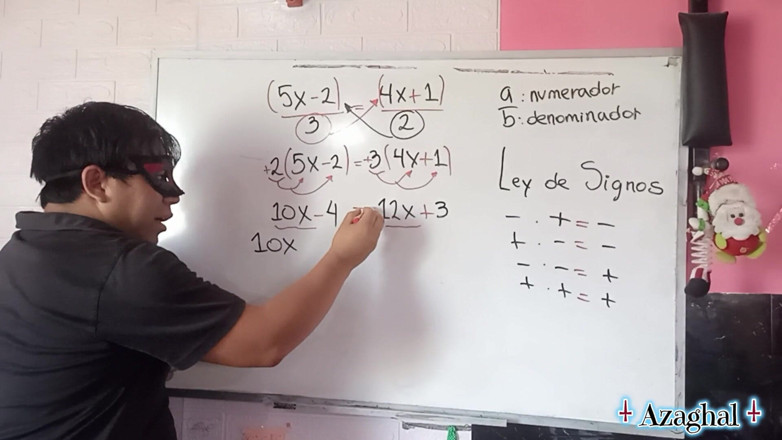 (5x-2) = (4x+1)
3 2
+2(5x-2)=+3(4x+1)
10x-4 = 12x+3
10x
a: numerador
b: denominador
Ley de Signos
- · + = -
+ · - = -
- · - = +
+ · + = +
Azaghal